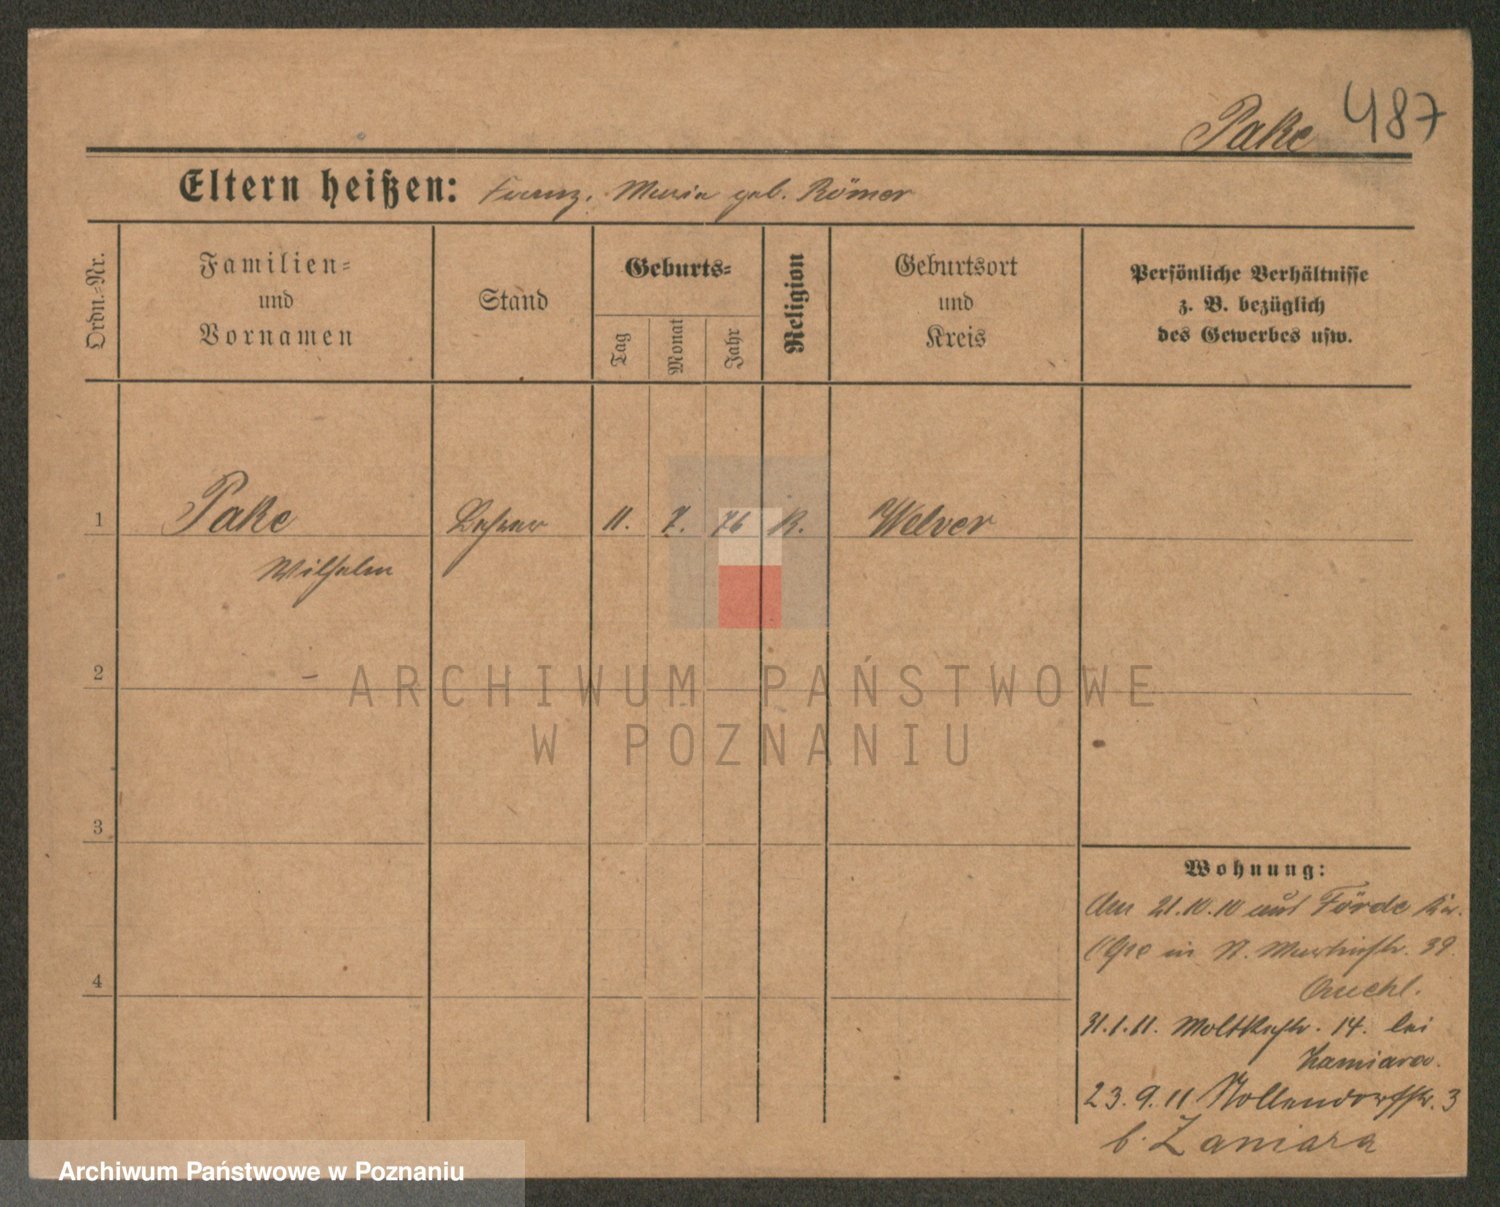 Pake 487
Eltern heißen: Franz. Maria geb. Römer
Ordn.-Nr.
Familien-
und
Vornamen
Stand
Geburts-
Tag
Monat
Jahr
Religion
Geburtsort
und
Kreis
Persönliche Verhältnisse
z. B. bezüglich
des Gewerbes usw.
1 Pake Lehrer 11. 7. 76 K. Welver
Wilhelm
2
3
4
Wohnung:
Am 21.10.10 aus Förde
in St. Martinstr. 39
31.1.11. Moltkestr. 14. bei
23.9.11 Nollendorfstr. 3
b. Zaniara
ARCHIWUM PAŃSTWOWE
W POZNANIU
Archiwum Państwowe w Poznaniu